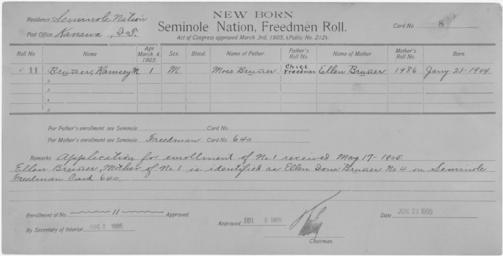 NEW BORN
Residence Seminole Nation
Seminole Nation, Freedmen Roll.
Card No. 8
Post Office Konawa, I.T.
Act of Congress approved March 3rd, 1905, (Public No. 212).
Roll No Name Age March 4, 1905. Sex. Blood. Name of Father. Father's Roll No. Name of Mother. Mother's Roll No. Born.
11 Bruner, Ramsey 1 M Mose Bruner Creek Freedman Ellen Bruner 1986 Jany 21-1904.
For Father's enrollment see Seminole Card No.
For Mother's enrollment see Seminole Freedman Card No. 640
Remarks Application for enrollment of No. 1 received May 17-1905.
Ellen Bruner, Mother of No. 1 is identified as Ellen Bruner No 4 on Seminole
Freedman Card 640.
Enrollment of No. 11 Approved
By Secretary of Interior 1905
Approved 1905
Chairman.
Date 1905